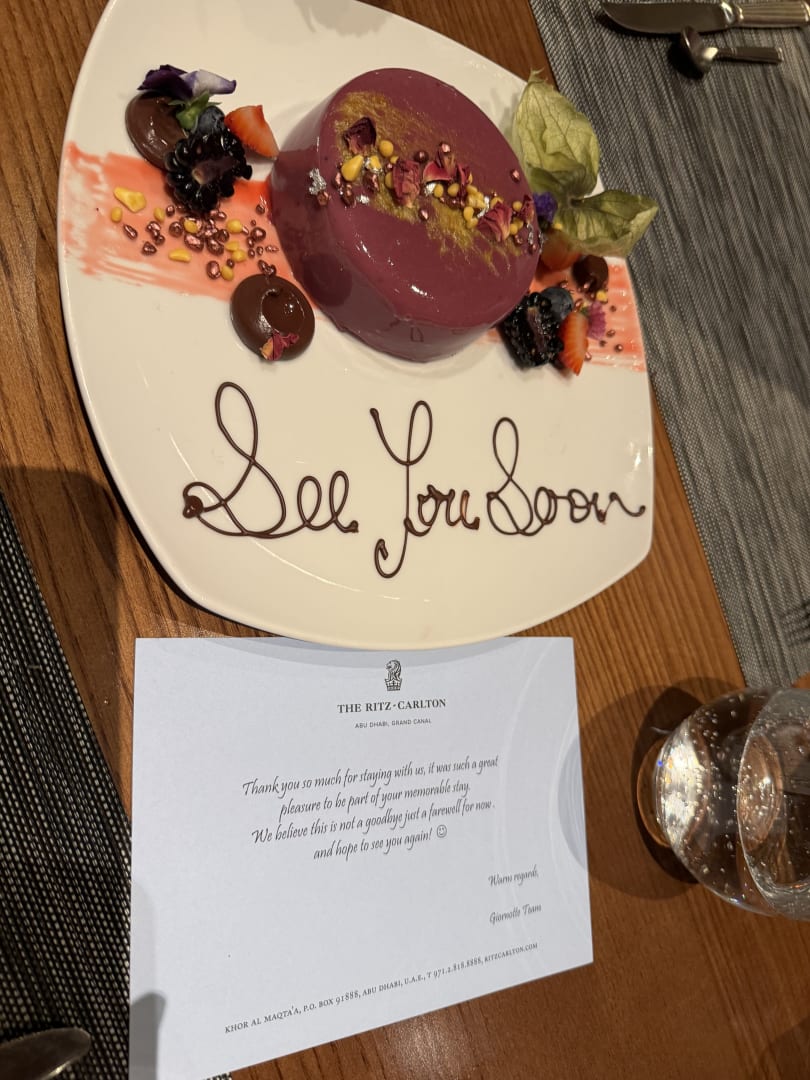 See You Soon
THE RITZ-CARLTON
ABU DHABI, GRAND CANAL
Thank you so much for staying with us, it was such a great
pleasure to be part of your memorable stay.
We believe this is not a goodbye just a farewell for now.
and hope to see you again! ☺
Warm regards,
Giornotte Team
KHOR AL MAQTA'A, P.O. BOX 91888, ABU DHABI, U.A.E., T 971.2.818.8888, RITZCARLTON.COM